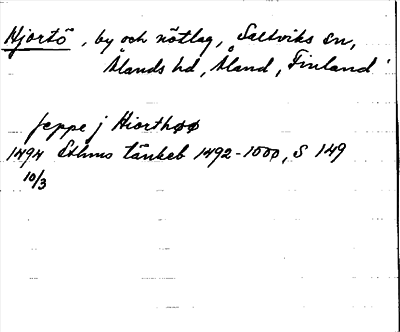 Hjortö, by och nötlag, Saltviks sn,
Ålands hd, Åland, Finland
Jeppe j Hiorthøø
1494 Sthms tänkeb 1492-1500, S 149
10/3